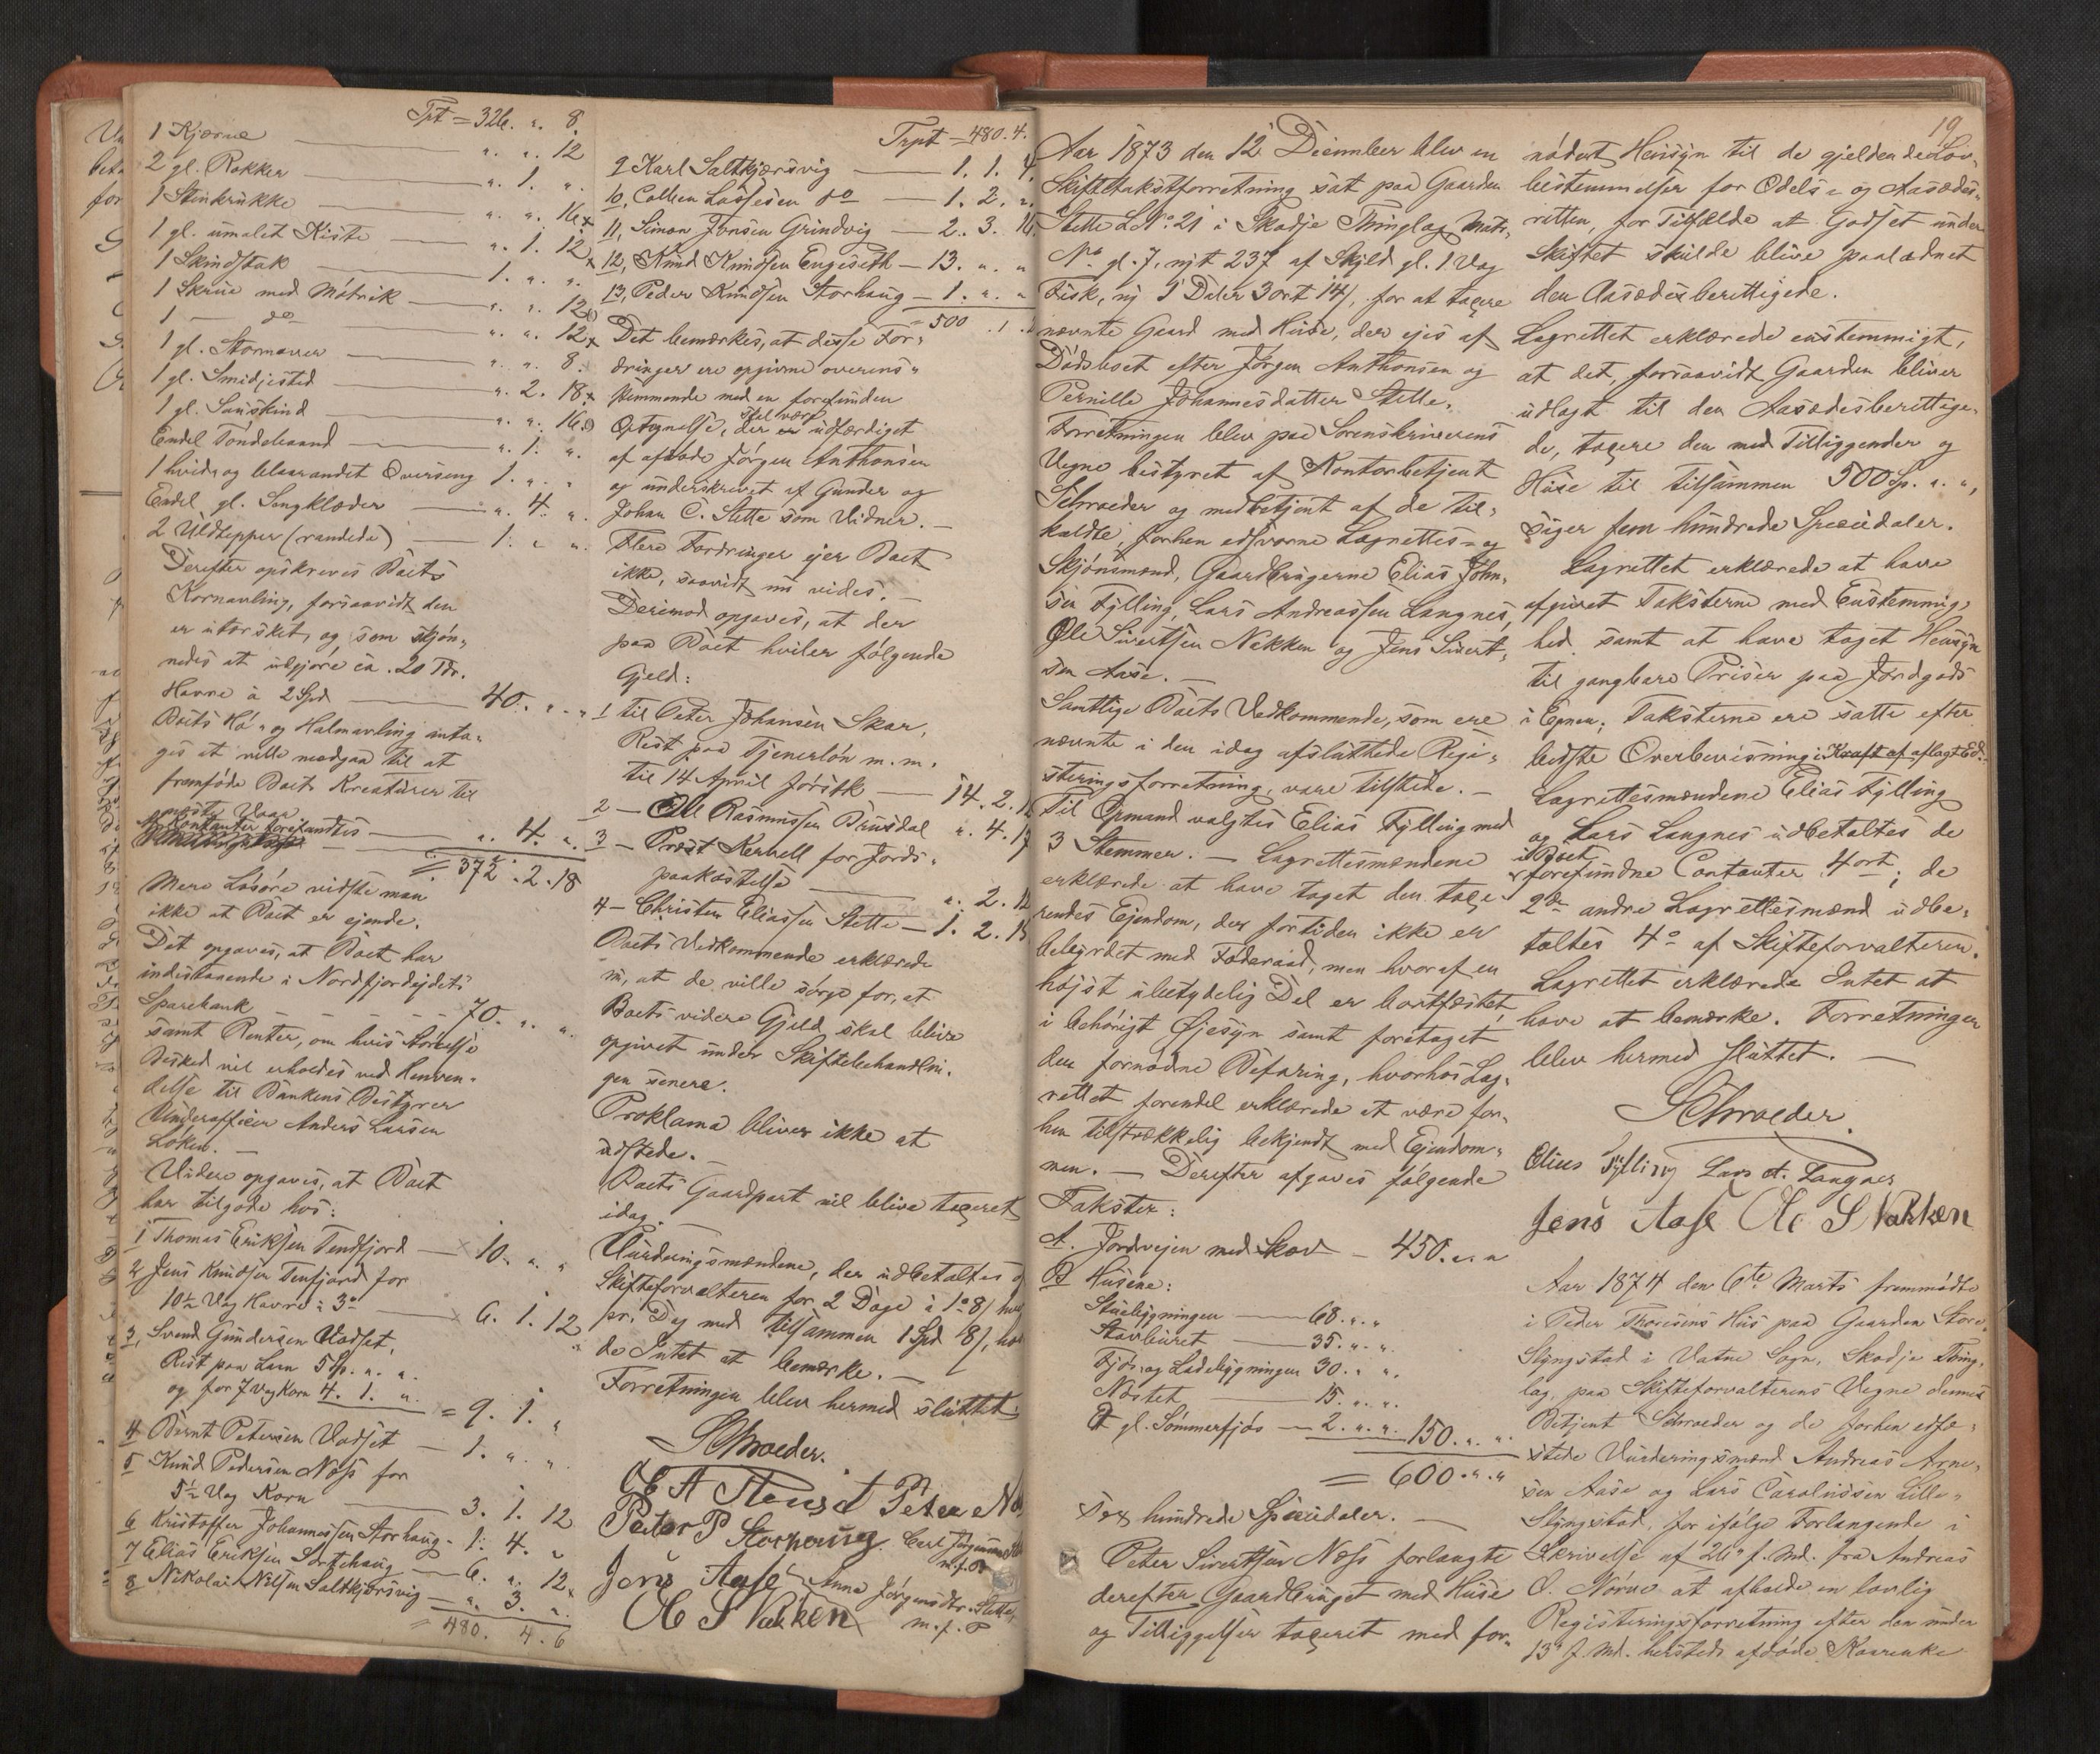 Trpt = 326. „. 8.
1 Kjærne „. „. 12
2 gl. Rokker „. 1. „.
1 Stenkrukke „. „. 16
1 gl. umalet Kiste „. 1. 12
1 Skindstak 1. „. „.
1 Skrue med Mótrik „. „. 12
1 — do „. „. 12
1 gl. „. „. 8.
1 gl. Smidjested „. 2. 18
1 gl. Sauskind „. „. 16
Endel Tóndebaand „. 1. „.
1 hvid og blaarandet Overseng 1. „. „
Endel gl. Sengklæder „. 4. „.
2 Uldtepper (randede) 1. „. „.
Derefter opskreves Boets
Kornavling, forsaavidt den
er utærsket, og som skjón-
nedes at udgjóre ca. 20 Tdr.
Havre à 2 Spd 40. „. „
Boets Hó- og Halmavling anta-
ges at ville medgaa til at
fremfóde Boets Kreaturer til
næste Vaar
Kontanter forefandtes „. 4. „.
= 372. 2. 18
Mere Lósóre vidste man
ikke at Boet er ejende.
Det opgaves, at Boet har
indestaaende i Nordfjordejdets
Sparebank 70. „. „.
samt Renter, om hvis Stórrelse
Besked vil erholdes ved Henven-
delse til Bankens Bestyrer
Underofficer Anders Larsen
Loken. —
Videre opgaves, at Boet
har tilgode hos:
1 Thomas Eriksen Tendfjord — 10. „. „
2 Jens Knudsen Tenfjord for
10½ Vog Havre à 3 ort 6. 1. 12
3, Svend Gundersen Vadset,
Rest paa Laan 5 Sp. „. „.
og for 7 Vog Korn 4. 1. „. = 9. 1. „
4 Bernt Petersen Vadset — 1. „. „.
5 Knud Pedersen Næss for
5½ Vog Korn 3. 1. 12
6 Kristoffer Johannessen Storhaug - 1. 4. „
7 Elias Eriksen Sortehaug — 6. „. 12
8 Nikolai Nilsen Saltkjærsvig — „. 3. „.
= 480. 4. 6
Trpt = 480. 4.
9 Karl Saltkjærsvig — 1. 1. 4.
10, Colben Lassesen do — 1. 2. „.
11, Simon Jonsen Grindvig — 2. 3. 16.
12, Knud Knudsen Engeseth — 13. „. „
13, Peder Knudsen Storhaug — 1. „. „
= 500. 1.
Det bemærkes, at disse For-
dringer ere opgivne overens-
stemmende med en forefunden
Optegnelse, der skal være udfærdiget
af afdøde Jórgen Anthonsen
og underskrevet af Gunder og
Johan C. Stette som Vidner. —
Flere Fordringer ejer Boet
ikke, saavidt nu vides. —
Derimod opgaves, at der
paa Boet hviler fólgende
Gjeld:
1 til Peter Johansen Skar,
Rest paa Tjenerlón m. m.
til 14 April fórstk — 14. 2. 12
2 — Ole Rasmussen Brusdal „. 4. 17
3 — Præst Kervell for Jords-
paakastelse „. 2. 12
4 — Christen Eliassen Stette — 1. 2. 18
Boets Vedkommende erklærede
nu, at de ville sórge for, at
Boets videre Gjeld skal blive
opgivet under Skiftebehandlin-
gen senere.
Proklama bliver ikke at
udstede. —
Boets Gaardpart vil blive taxeret
idag. —
Vurderingsmændene, der udbetaltes
Skifteforvalteren for 2 Dage à 1 ort 8 s. hver
pr. Dag med tilsammen 1 Spd 8 s., hav
de Intet at bemærke. —
Forretningen blev hermed sluttet.
Schroeder.
Peter
Peter P Storhaug Carl Jørgensen
m. f. P
Jens Aase Anna Jórgensdtr. Stette,
m. f. P
Ole S Nakken
19
Aar 1873 den 12. December blev en
Skiftetakstforretning sat paa Gaarden
Stette LNo. 21 i Skodje Thinglag Matr.
No gl. 7, nyt 237 af Skyld gl. 1 Vog
Fisk, ny 1 Daler 3 ort 14 s, for at taxere
nævnte Gaard med Huse, der ejes af
Dódsboet efter Jórgen Anthonsen og
Pernille Johannesdatter Stette.
Forretningen blev paa Sorenskriverens
Vegne bestyret af Kontorbetjent
Schroeder og medbetjent af de til-
kaldte, forhen edsvorne Lagrettes- og
Skjónsmænd, Gaardbrugerne Elias John-
sen Fylling, Lars Andreassen Langnes,
Ole Sivertsen Nakken og Jens Sivert-
sen Aase. —
Samtlige Boets Vedkommende, som ere
nævnte i den idag afsluttede Regi-
streringsforretning, vare tilstede. —
Til Opmand valgtes Elias Fylling med
3 Stemmer. — Lagrettesmændene
erklærede at have taget den taxe-
rendes Ejendom, der fortiden ikke er
bebyrdet med Føderaad, men hvoraf en
hójst ubetydelig Del er bortfæstet,
i behórigt Øjesyn samt foretaget
den fornødne Befaring, hvorhos Lag-
rettet forendel erklærede at være for-
hen tilstrækkelig bekjendt med Ejendom-
men. — Derefter afgaves fólgende
Takster:
A. Jordvejen med Skov — 450. „. „
B Husene:
Stuebygningen — 68. „. „
Stavburet — 35. „. „.
Fjós- og Ladebygningen 30. „. „.
Nóstet — 15. „. „.
Et gl. Sómmerfjós — 2. „. „. 150. „. „.
= 600. „. „
Sex hundrede Speciedaler. —
Peter Sivertsen Næss forlangte
derefter Gaardbruget med Huse
og Tilliggelser taxeret med for-
nódent Hensyn til de gjeldende Lov-
bestemmelser for Odels- og Aasædes-
retten, for Tilfælde at Godset under
Skiftet skulde blive paalædnet
den Aasædesberettigede.
Lagrettet erklærede enstemmigt,
at det, forsaavidt Gaarden bliver
udlagt til den Aasædesberettige-
de, taxere den med Tilliggender og
Huse til tilsammen 500 Sp. „. „,
siger fem hundrede Speciedaler.
Lagrettet erklærede at have
afgivet Taksterne med Enstemmig-
hed samt at have taget Hensyn
til gangbare Priser paa Jordgods
i Egnen; Taksterne ere satte efter
bedste Overbevisning i Kraft af aflagt Ed. —
Lagrettesmændene Elias Fylling
og Lars Langnes udbetaltes de
i Boet
forefundne Contanter 4 ort; de
2de andre Lagrettesmænd udbe-
taltes 4 ort af Skifteforvalteren.
Lagrettet erklærede Intet at
have at bemærke. Forretningen
blev hermed sluttet. —
Schroeder.
Elias Fylling Lars A. Langnes
Jens Aase Ole S Nakken
Aar 1874 den 6te Marts fremmódte
i Peder Thoresens Hus paa Gaarden Store
Slyngstad i Vatne Sogn, Skodje Thing-
lag, paa Skifteforvalterens Vegne dennes
Betjent Schroeder og de forhen edfæ-
stede Vurderingsmænd Andreas Arne-
sen Aase og Lars Carolussen Lille-
Slyngstad, for ifólge Forlangende i
Skrivelse af 26de f. Md. fra Andreas
O. Nórve at afholde en lovlig
Registreringsforretning efter den under
13de f. Md. hersteds afdóde Kaarenke